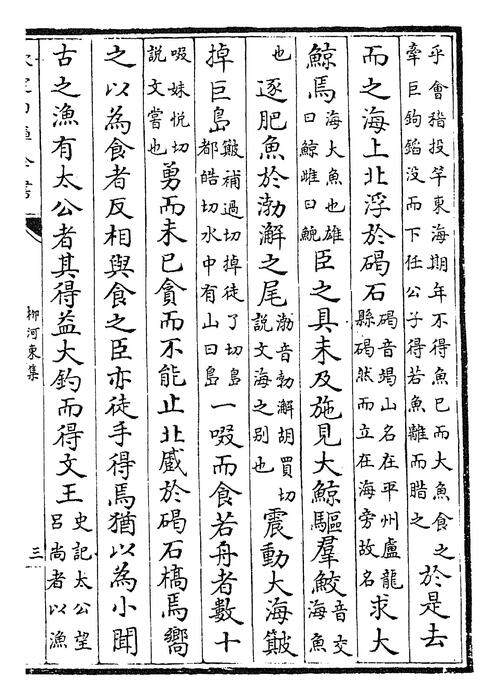 乎會稽投竿東海期年不得魚已而大魚食之
牽巨鉤錎没而下任公子得若魚離而腊之
於是去
而之海上北浮於碣石
碣音竭山名在平州盧龍
縣碣然而立在海旁故名
求大
鯨焉
海大魚也雄
曰鯨雌曰鯢
臣之具未及施見大鯨驅羣鮫
音交
海魚
也
逐肥魚於渤澥之尾
渤音勃澥胡買切
說文海之别也
震動大海簸
掉巨島
簸補過切掉徒了切島
都皓切水中有山曰島
一啜而食若舟者數十
啜姝悅切
說文嘗也
勇而未已貪而不能止北蹙於碣石槁焉嚮
之以為食者反相與食之臣亦徒手得焉猶以為小聞
古之漁有太公者其得益大釣而得文王
史記太公望
吕尚者以漁
柳河東集
三